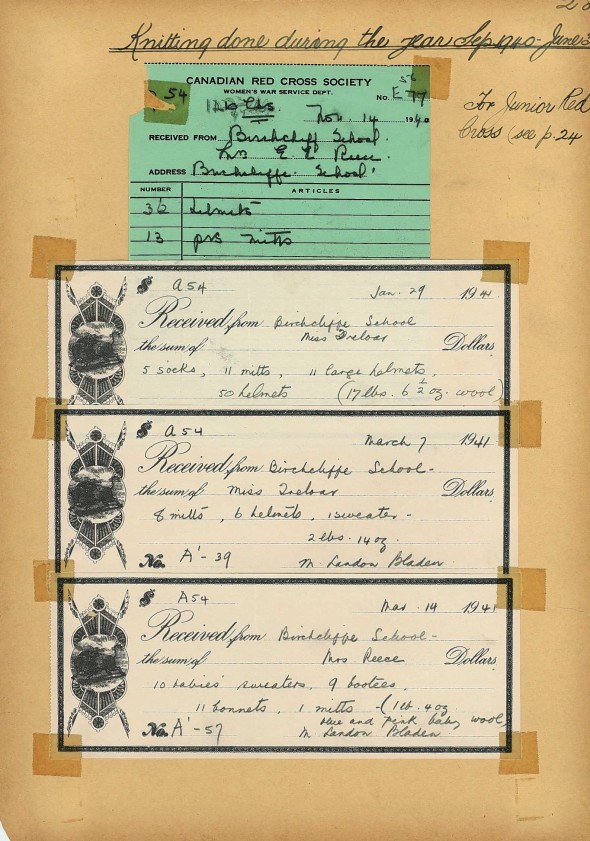 Knitting done during the year Sep. 1940 - June 3
For Junior Red
Cross (see p. 24
CANADIAN RED CROSS SOCIETY
WOMEN'S WAR SERVICE DEPT.
54
56
No. E 77
Nov. 14 1940
RECEIVED FROM Birchcliff School
Mrs E L Reece
ADDRESS Birchcliffe School
NUMBER ARTICLES
36 helmets
13 prs mitts
$ A 54
Jan. 29 1941
Received from Birchcliffe School
Miss Treloar
the sum of Dollars
5 socks, 11 mitts, 11 large helmets,
50 helmets (17 lbs. 6 1/2 oz. wool)
$ A 54
March 7 1941
Received from Birchcliffe School -
the sum of Miss Treloar Dollars
8 mitts, 6 helmets, 1 sweater -
2 lbs. 14 oz.
No. A' - 39 M. Landon Bladen
$ A 54
Mar. 14 1941
Received from Birchcliffe School -
the sum of Mrs Reece Dollars
10 babies' sweaters, 9 bootees,
11 bonnets, 1 mitts - (1 lb. 4 oz.
blue and pink baby wool)
No. A' - 57 M. Landon Bladen